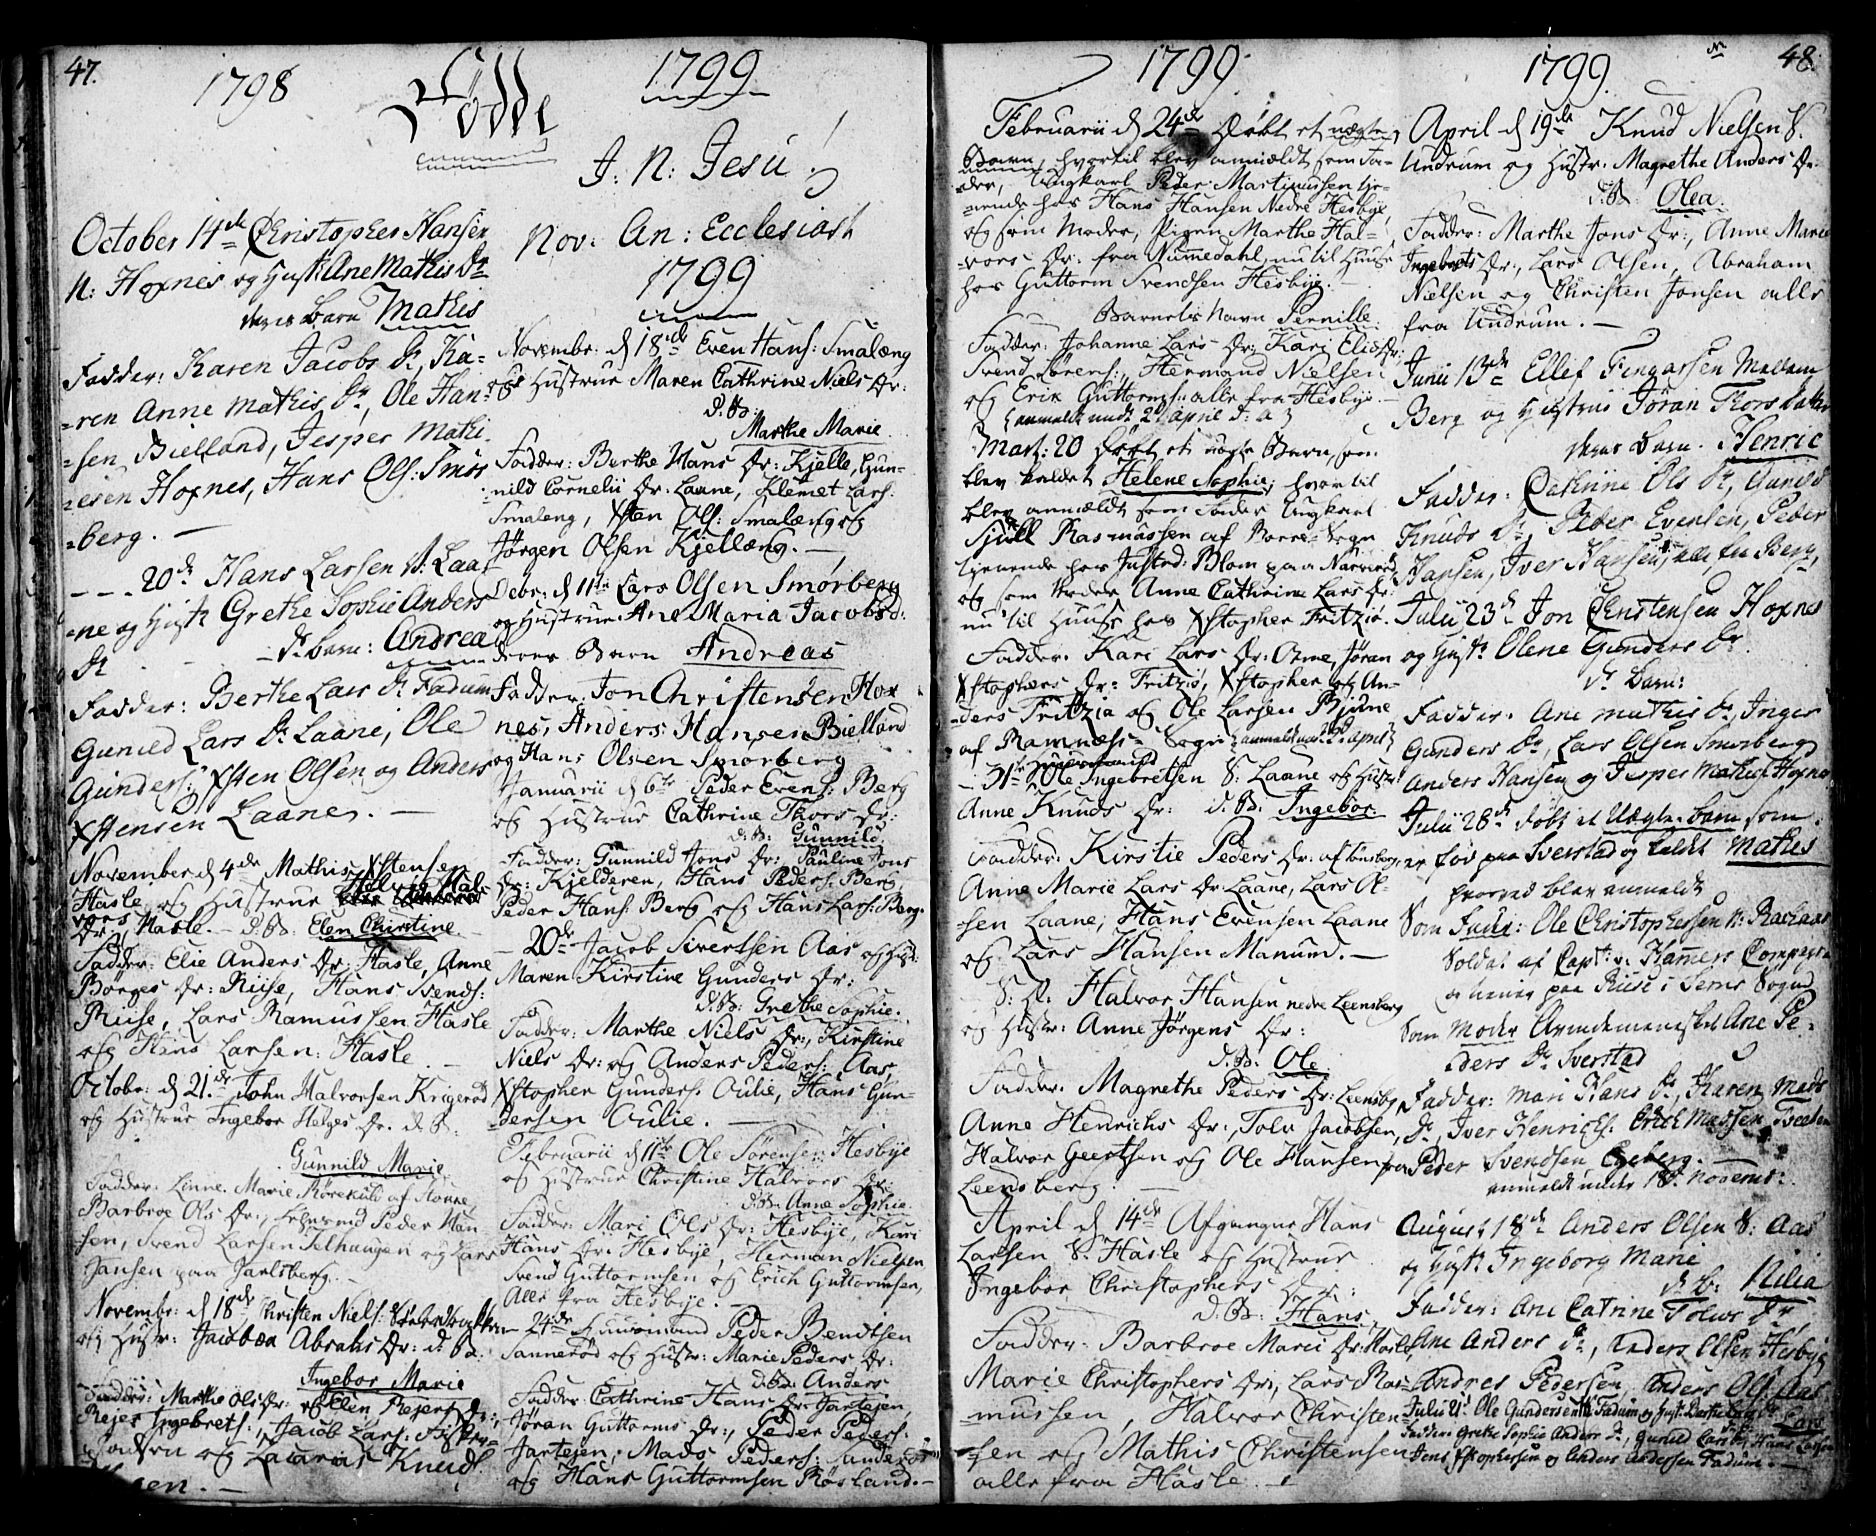 47.
1798
Födde
1799
J: N: Jesu!
October 14de Christopher Hansen
N: Hoxnes og Hust: Ane Mathis Dr
deres Barn Mathis
Fadder: Karen Jacobs Dr, Ka=
=ren Anne Mathis Dr, Ole Han=
=sen Bielland, Jesper Mathi=
=esen Hoxnes, Hans Ols: Smör
=berg. —
- - - 20de Hans Larsen N: Laa=
=ne og Hust: Grethe Sophie Anders
Dr - - - Ds Barn: Andrea
Fadder: Berthe Lars Dr Fadum
Gunild Lars Dr Laane, Ole
Gunders: Xsten Olsen og Anders
Xstensen Laane. —
November d 4de Mathis Xstensen
Hasle og Hustrue Helvig Hal=
vors Dr: Hasle. — D: B: Elen Christine
Fadder: Elie Anders Dr: Hasle, Anne
Borges Dr: Riise, Hans Svends:
Riise, Lars Ramussen Hasle
og Hans Larsen: Hasle
Octobr: d 21de John Halvorsen Krigerød
og Hustrue Ingebor Helges Dr. d. B:
Gunnild Marie
Fadder: Linne Marie Rörekuld af Tonne
Barbroe Ols Dr:, Peder Han
sen, Svend Larsen Selhaugen og Lars
Jansen paa Jarlsberg. —
Novembr: d 18de Christen Niels:
og Hustr: Jacobea Abrahs Dr: d. B:
Ingebor Marie
Fadder: Marthe Ols Dr: og Elen Rejers Dr:,
Rejer Ingebrets:, Jacob Lars: Fisker=
og Zacarias Knuds
=sen. —
Nov: An: Ecclesiast
1799
Novembr: d 18de Even Hans: Smalæng
og Hustrue Maren Cathrine Niels Dr:
D. B:
Marthe Marie
Fadder: Berthe Hans Dr: Kjelle, Gun=
=nild Cornelii Dr: Laane, Klemet Lars:
Smaleng, Xsten Ols: Smalæng og
Jörgen Olsen Kjellæng. —
Debr: d 11te Lars Olsen Smørberg
og Hustrue: Ane Maria Jacobs d:
deres Barn Andreas
Fadder: Jon Christensen Hox
nes, Anders Hansen Bielland
og Hans Olsen Smorberg
Januarii d 6te Peder Evens: Berg
og Hustrue Cathrine Thors Dr:
D. B: Gunnild
Fadder: Gunnild Jons Dr: Pauline Jons
Dr: Kjelderen, Hans Peders: Berg
Peder Hans: Berg og Hans Lars: Berg.
— 20de Jacob Sivertsen Aas og Hust:
Maren Kirstine Gunders Dr:
D. B: Grethe Sophie.
Fadder: Marthe Niels Dr:, Kirstine
Niels Dr: og Anders Peders: Aas,
Xstopher Gunders: Oulie, Hans Gun=
=dersen Oulie. —
Februarii d 11te Ole Sørensen: Hesbye
og Hustrue Christine Halvors Dr:
D. B: Anne Sophie.
Fadder: Mari Ols Dr: Hesbye, Kari
Hans Dr: Hesbye, Herman Nielsen
Svend Guttormsen og Erich Guttormsen,
Alle fra Hesbye. —
— 24de Huusmand Peder Bendtsen
Sannerød og Hustr: Marie Peders Dr:
D. B: Anders
Fadder: Cathrine Hans Dr: Jartejen
Jöran Guttorms Dr:, Peder Peders:
Jartejen, Mads Peders: Sanderød
og Hans Guttormsen Røsland. —
1799.
Februarii d 24de Døbt et uægte
Barn, hvortil blev anmældt som Fa=
der, Ungkarl Peder Martinussen tje=
=nende hos Hans Hansen Nedre Hesbye,
og som Moder, Pigen Marthe Hal=
=vors Dr: fra Numedahl, nu til Huuse
hos Guttorm Svendsen Hesbye. —
Barnets Navn Pernille.
Fadder: Johanne Lars Dr: Kari Elies Dr:
Svend Sörens:, Hermand Nielsen
og Erik Guttorms: alle fra Hesbye. —
(anmeldt under 2 April d: a)
Mart: 20 Døbt et uægte Barn, som
blev kaldet Helene Sophie, hvortil
blev anmældt som Fader Ungkarl
Sjuell Rasmussen af Borre Sogn
tjenende hos Justsrd: Blom paa Narverød,
og som Moder Anne Cathrine Lars Dr:
nu til Huuse hos Xstopher Fritzöe.
Fadder: Kari Lars Dr: Orme, Jøran
Xstophers Dr: Fritzöe, Xstopher og An=
=ders Fritzöe og Ole Larsen Bjune
af Ramnæs Sogn
— 31te Ole Ingebretsen S: Laane og Hustr:
Anne Knuds Dr: D. B: Ingebor
Fadder: Kirstie Peders Dr: af Tønsberg,
Anne Marie Lars Dr: Laane, Lars Ol=
sen Laane, Hans Evensen Laane
og Lars Hansen Manum. —
S: D: Halvor Hansen nedre Leensberg
og Hustr: Anne Jörgens Dr:
D. B: Ole
Fadder: Magrethe Peders Dr: Leensbg,
Anne Henrichs Dr:, Tolv Jacobsen,
Halvor Geertsen og Ole Hansen fra
Leensberg. —
April d 14de Afgangne Hans
Larsen S: Hasle og Hustrue
Ingebor Christophers Dr:
D. B: Hans.
Fadder: Barbroe Marii Dr: Hasle,
Marie Christophers Dr:, Lars Ras=
=mussen, Halvor Christen=
=sen og Mathis Christensen
alle fra Hasle. —
1799.
48.
April d 19de Knud Nielsen S.
Undrum og Hustr: Magrethe Anders Dr:
d: B: Olea.
Fadder: Marthe Jons Dr:, Anne Marie
Ingebrets Dr:, Lars Olsen, Abraham
Nielsen og Christen Jonsen alle
fra Undrum. —
Junii 13de Ellef Fingarsen Mellem
Berg og Hustrue Jöran Thors Datter
deres Barn. Henric
Fadder: Cathrine Ols Dr, Gunild
Knuds Dr, Peder Evensen, Peder
Hansen, Iver Hansen, alle fra Berg,
Julii 23de Jon Christensen Hoxnes
og Hust: Olene Gunders Dr.
Ds Barn:
Fadder: Ane Mathis Dr, Inger
Gunders Dr, Lars Olsen Smorberg
Anders Hansen og Jesper Mathis: Hoxnes
Julii 28de Döbt et Uægte Barn som
er föd paa Sverstad og kaldt Mathis
hvorved blev anmeldt
Som Fader: Ole Christophersen N: Raelaas
Soldat af Capt: v: Kamers Compagnie
og tienner paa Riise i Sems Sogn
Som Moder Qvindemennesket Ane Pe=
ders Dr Sverstad
Fadder: Mari Hans Dr, Karen Mads
Dr, Iver Henrichs: Erich Madsen
Peder Svendsen Egeberg. —
anmeldt under 18de Novemb:
August 18de Anders Olsen S: Aas
og Hust: Ingeborg Marie
D. B: Nilia
Fadder: Ane Catrine Tolvs Dr
Ane Anders Dr, Anders Olsen Hesbye
Andres Pedersen, Anders Ols: Aas
Julii 21de Ole Gundersen N: Fadum og Hust: Berthe Lars Dr Lars
Fadder: Grethe Sophie Anders Dr, Gunild Lars Dr, Hans Larsen
Jens Xstophersen og Anders Andersen Fadum. —